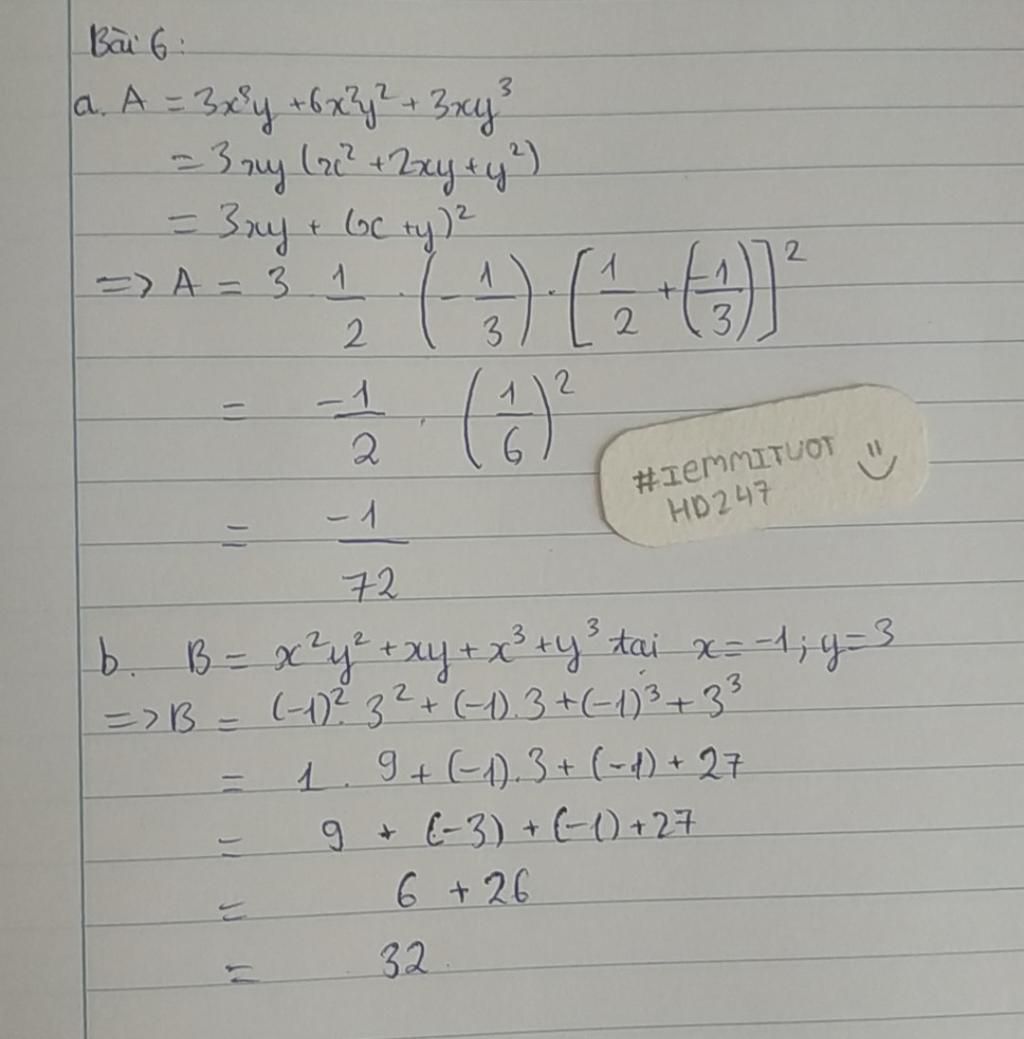 Bài 6:
a. A = 3x³y + 6x²y² + 3xy³
= 3xy (x² + 2xy + y²)
= 3xy + (x + y)²
=> A = 3 1/2 . (-1/3) . [1/2 + (-1/3)]²
= -1/2 . (1/6)²
= -1/72
#IEMMITUOT
HD247
b. B = x²y² + xy + x³ + y³ tại x = -1; y = 3
=> B = (-1)². 3² + (-1). 3 + (-1)³ + 3³
= 1 . 9 + (-1). 3 + (-1) + 27
= 9 + (-3) + (-1) + 27
= 6 + 26
= 32.